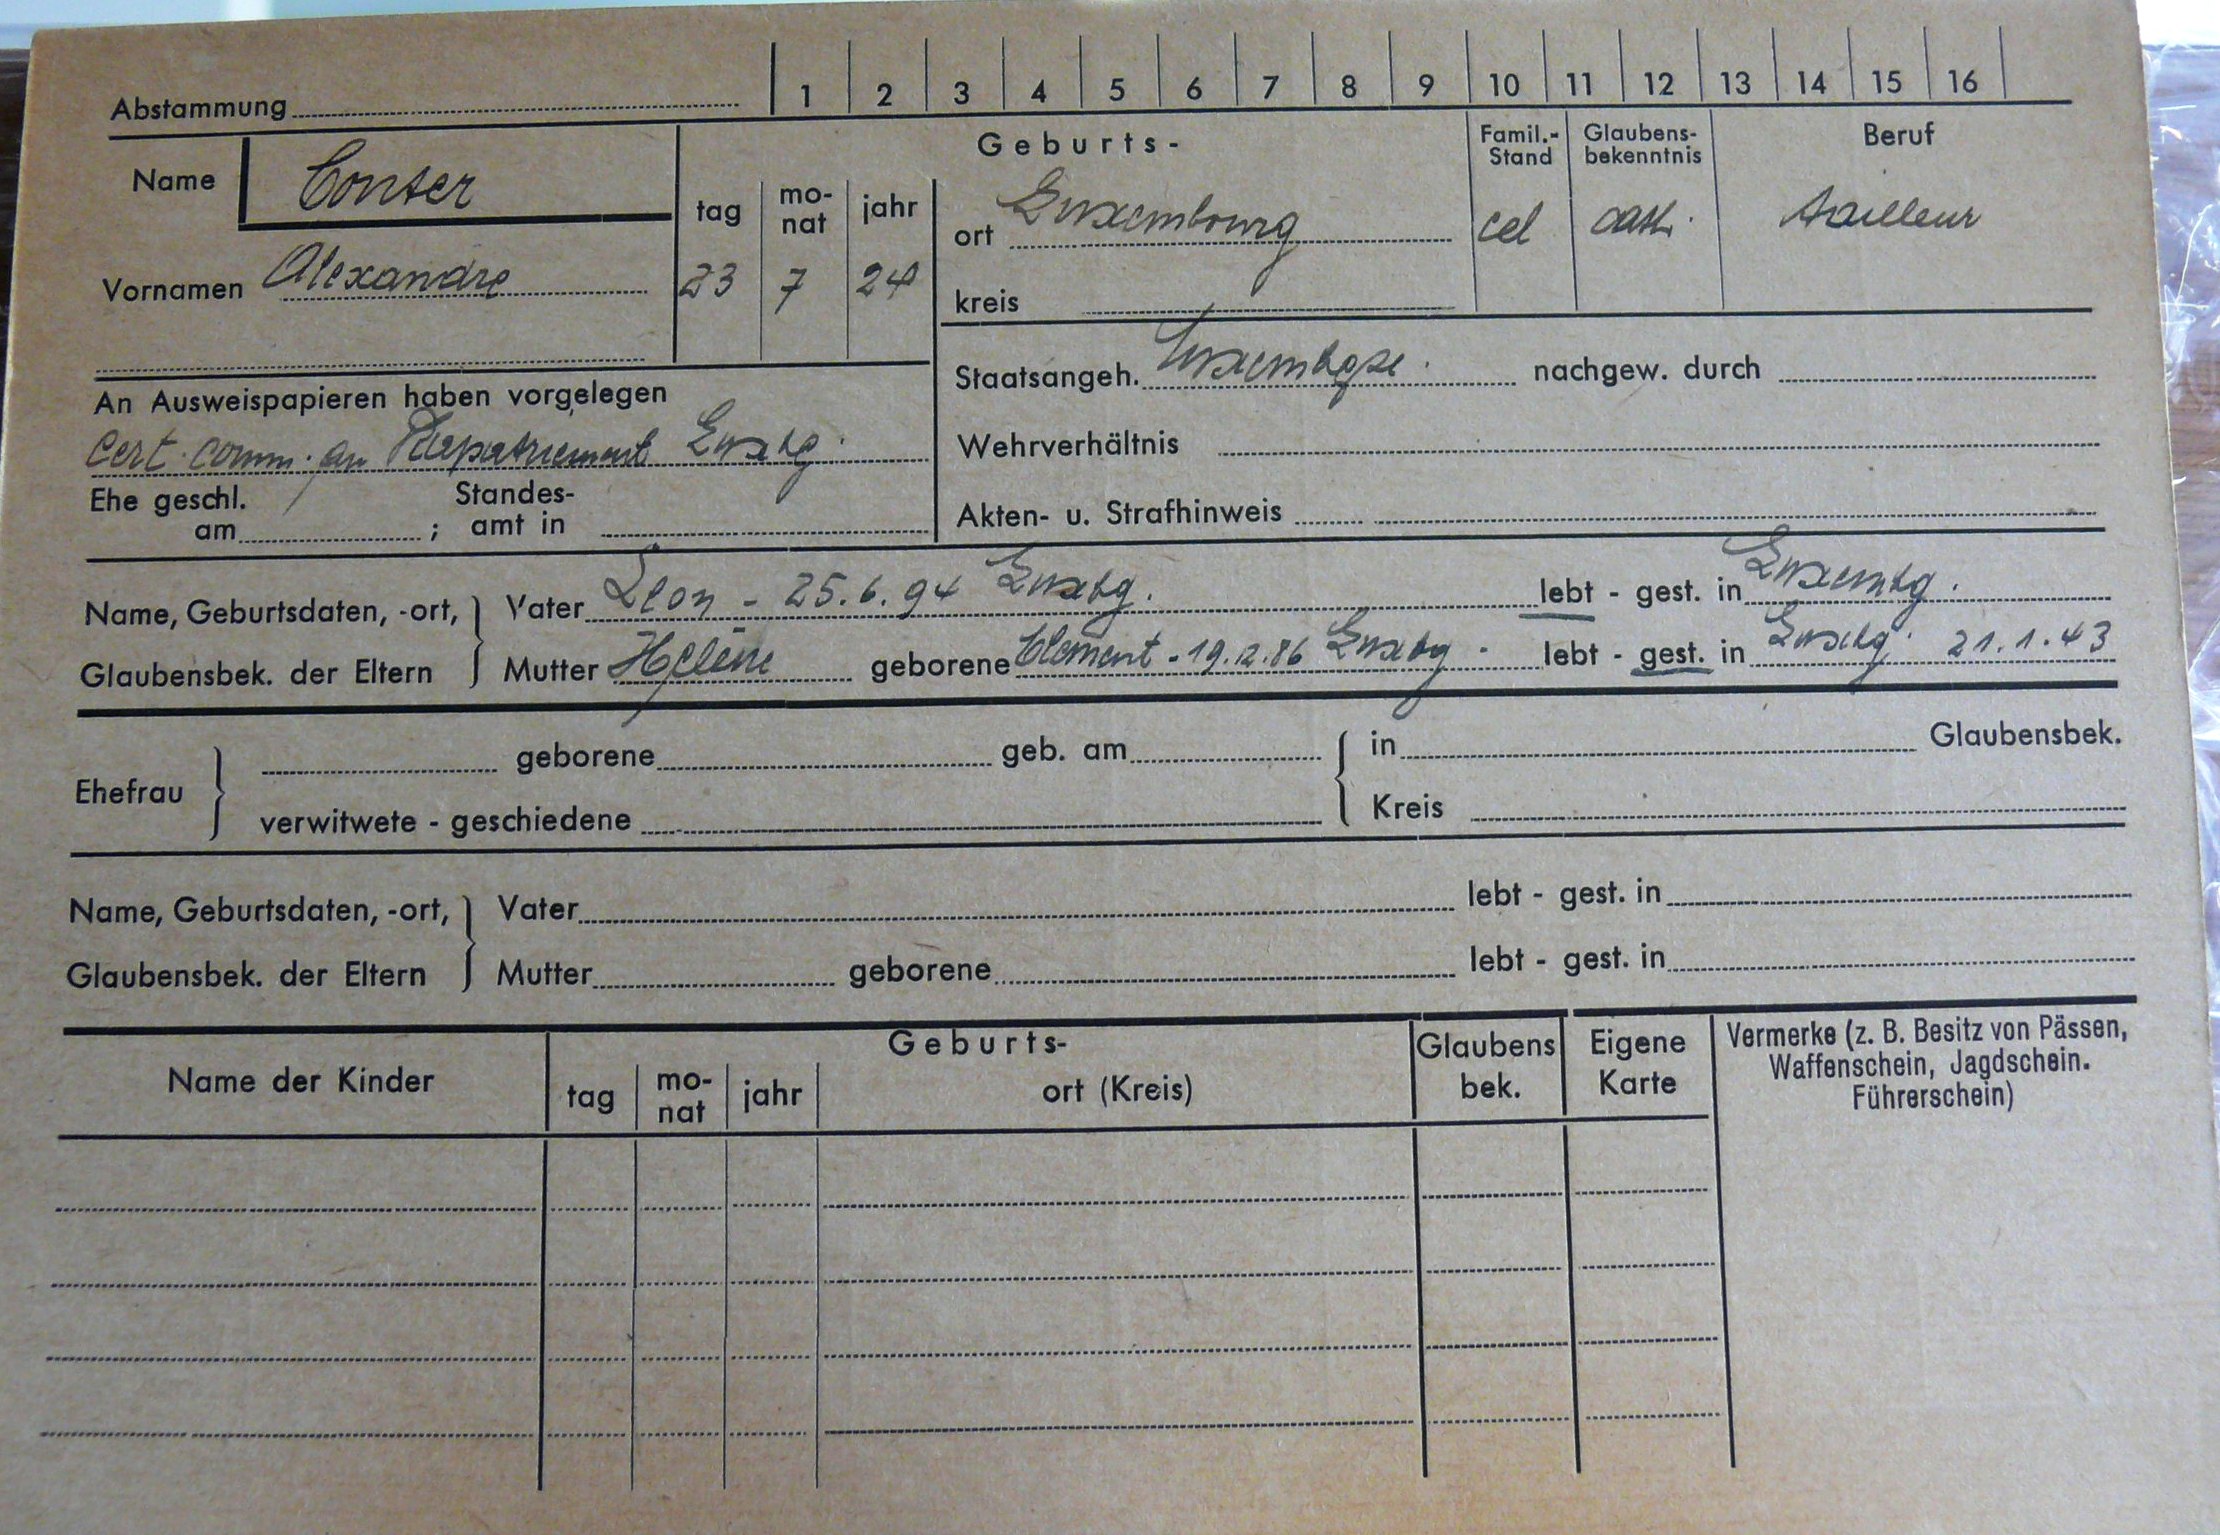 Abstammung 1 2 3 4 5 6 7 8 9 10 11 12 13 14 15 16
Name Conter
Vornamen Alexandre
Geburts-
tag mo-nat jahr
23 7 24
ort Luxembourg
kreis
Famil.-Stand
cel
Glaubens-bekenntnis
cath.
Beruf
tailleur
An Ausweispapieren haben vorgelegen
Cert. comm. au Rapatriement Luxbg.
Ehe geschl. am ; Standes-amt in
Staatsangeh. luxembgse. nachgew. durch
Wehrverhältnis
Akten- u. Strafhinweis
Name, Geburtsdaten, -ort, Vater Léon - 25.6.94 Luxbg. lebt - gest. in Luxembg.
Glaubensbek. der Eltern Mutter Hélène geborene Clement - 19.12.86 Luxbg. lebt - gest. in Luxbg. 21.1.43
Ehefrau geborene geb. am in Glaubensbek.
verwitwete - geschiedene Kreis
Name, Geburtsdaten, -ort, Vater lebt - gest. in
Glaubensbek. der Eltern Mutter geborene lebt - gest. in
Name der Kinder
Geburts-
tag mo-nat jahr ort (Kreis)
Glaubens bek.
Eigene Karte
Vermerke (z. B. Besitz von Pässen,
Waffenschein, Jagdschein.
Führerschein)